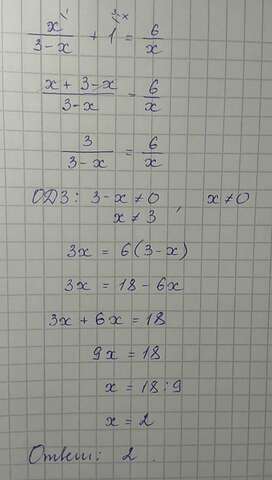 x\1 / 3-x + 1\3-x = 6 / x
x + 3 - x / 3-x = 6 / x
3 / 3-x = 6 / x
ОДЗ: 3-x ≠ 0 , x ≠ 0
x ≠ 3
3x = 6(3-x)
3x = 18 - 6x
3x + 6x = 18
9x = 18
x = 18:9
x = 2
Ответ: 2.